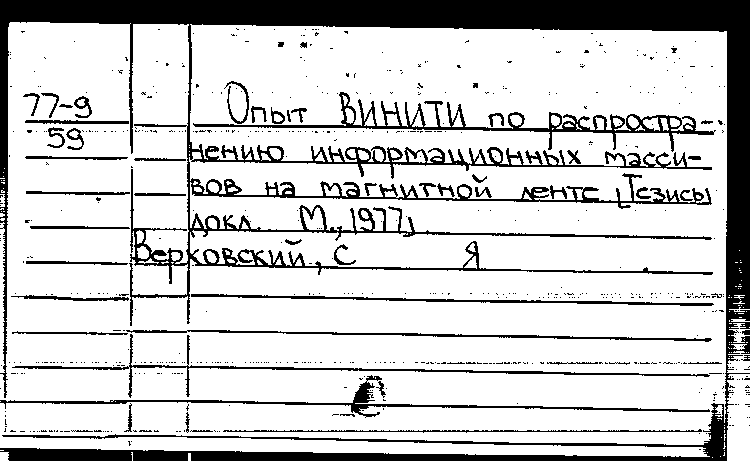 77-9
59
Опыт ВИНИТИ по распростра-
нению информационных масси-
вов на магнитной ленте [Тезисы
докл. М., 1977]
Верковский, С Я